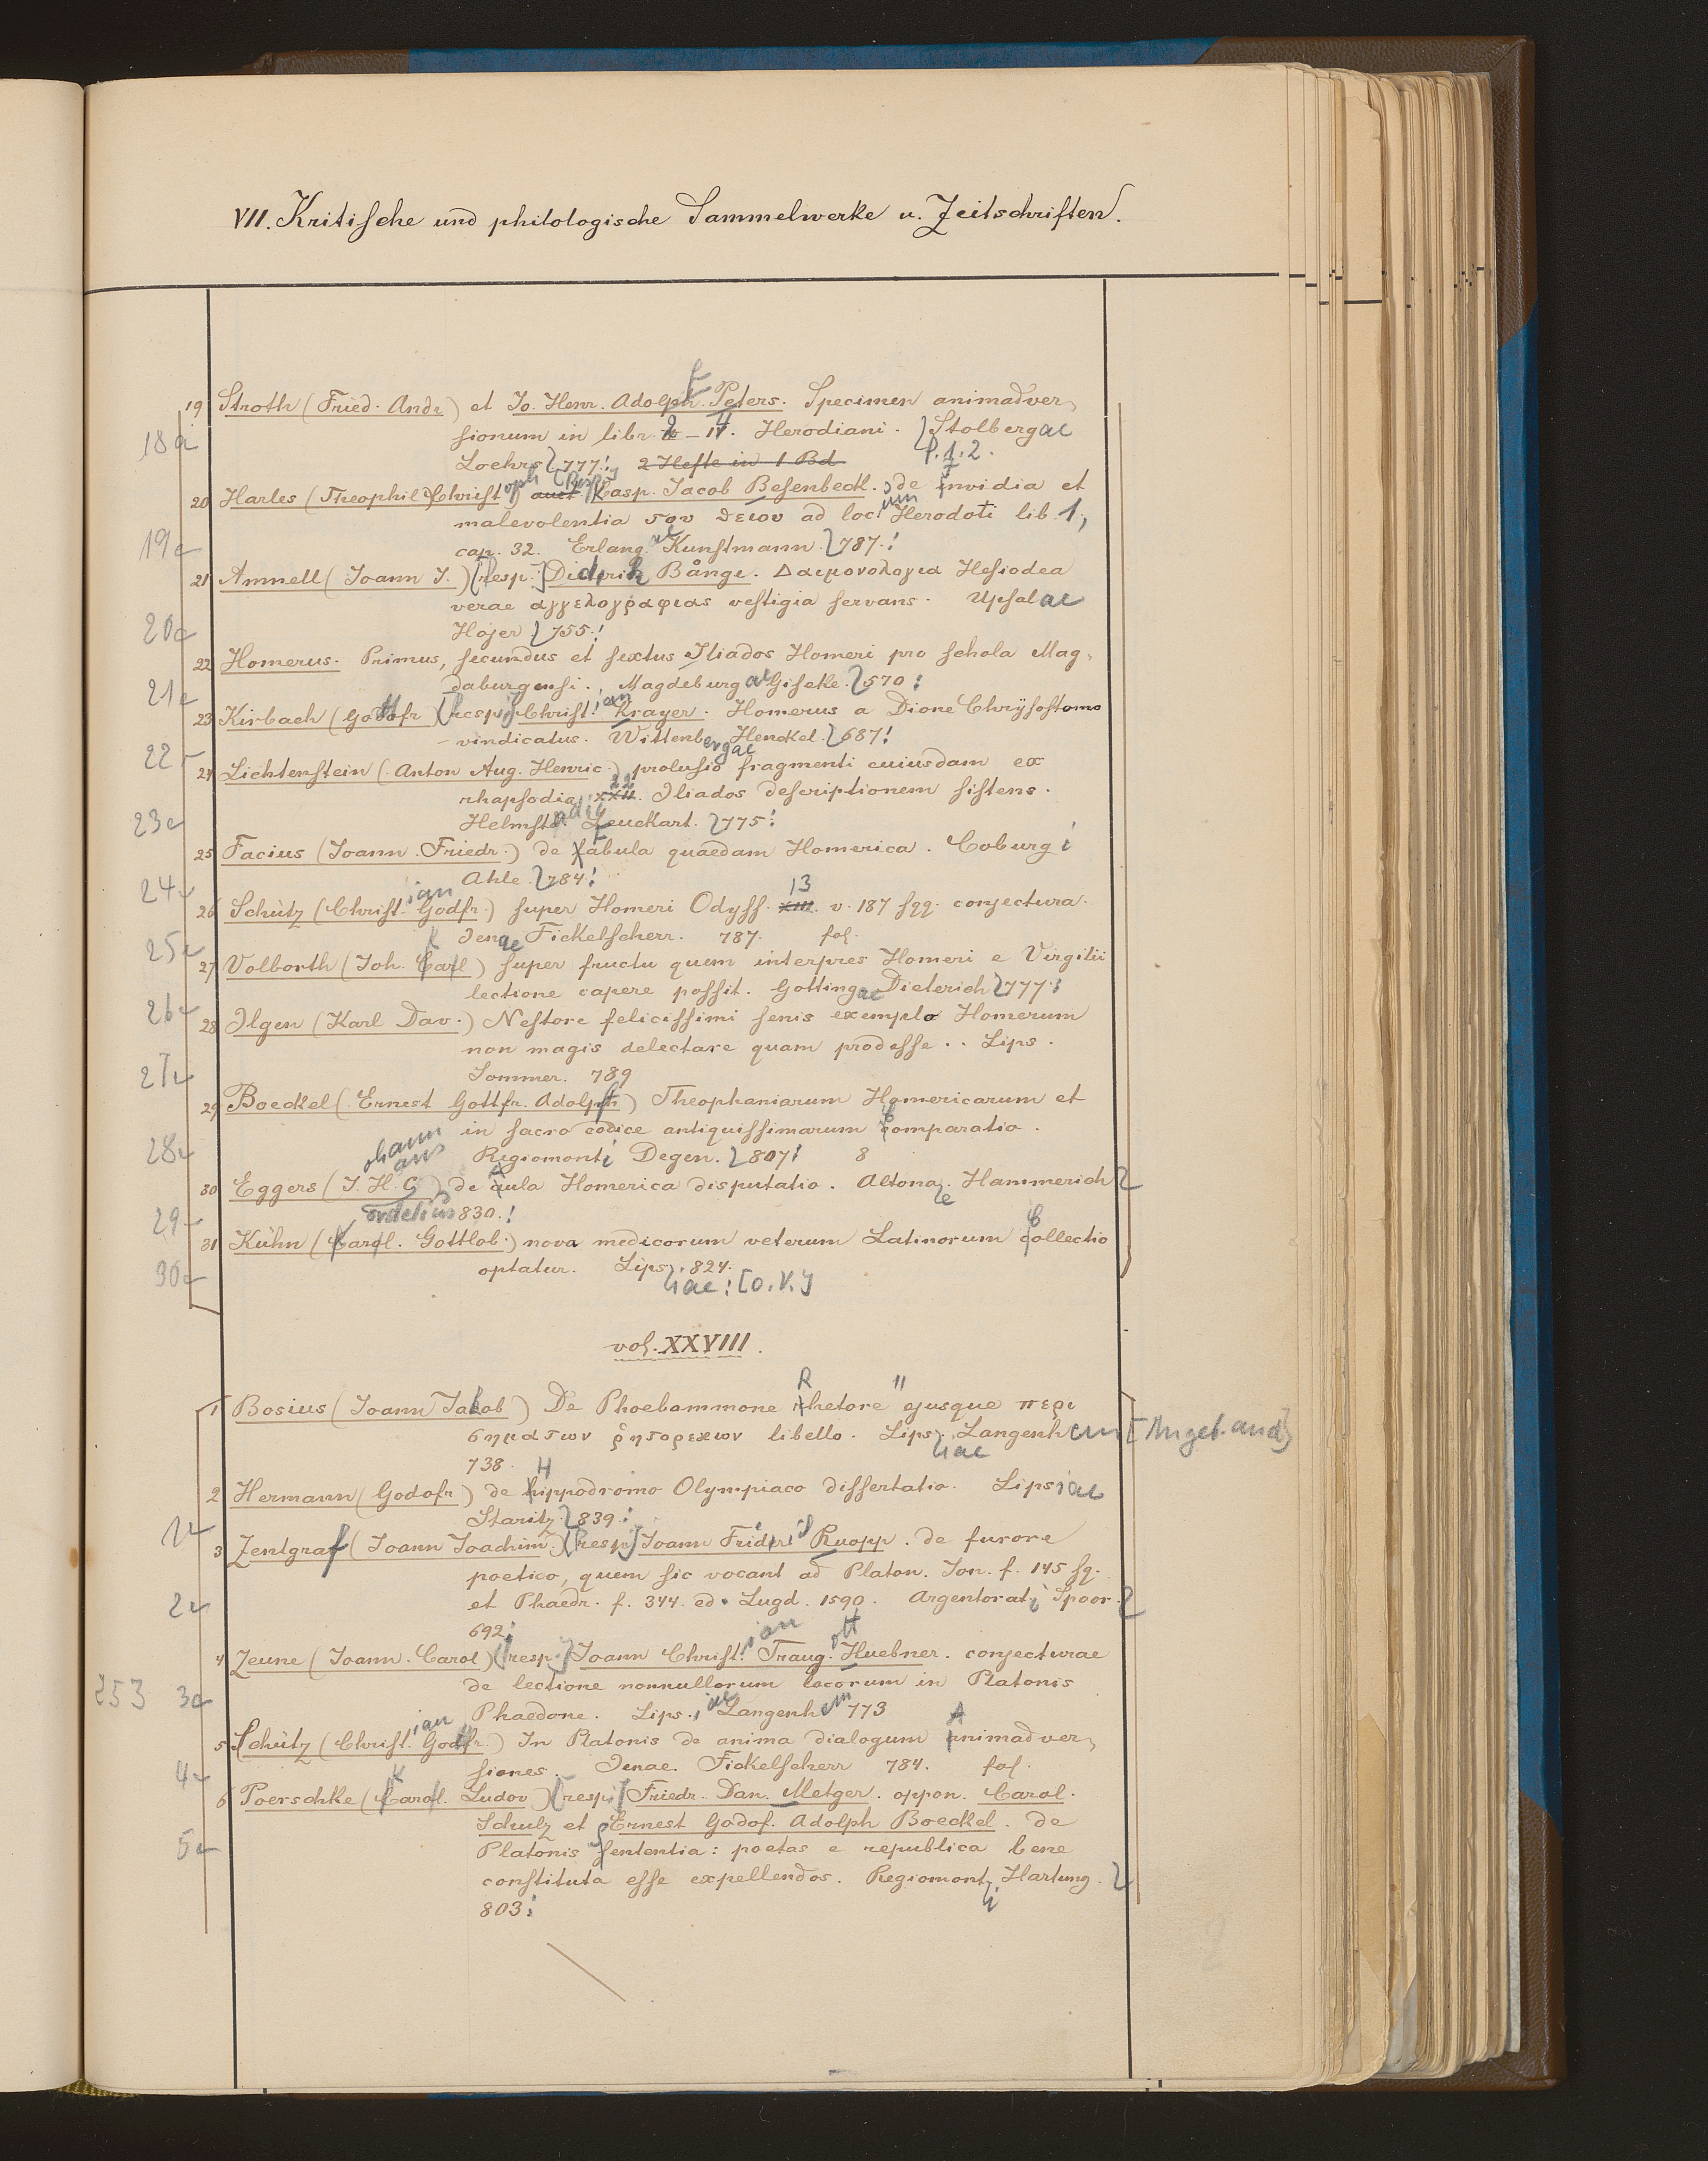 VII. Kritische und philologische Sammelwerke u. Zeitschriften.
19 Stroth (Fried. Andr) et Jo. Henr. Adolph. Peters. Specimen animadver-
sionum in libr. 2 – 4. Herodiani. Stolbergae
18a
Loehrs 777. 2 Hefte in 1 Bd P. 1. 2.
20 Harles (Theophil Christoph) auct [Resp.] Casp. Jacob Besenbeck. de invidia et
malevolentia του θειου ad locum Herodoti lib. 1,
19a
cap. 32. Erlangae Kunstmann. 787.
21 Amnell (Joann J.) [resp.] Diderik Bånge. Δαιμονολογια Hesiodea
verae αγγελογραφιας vestigia servans. Upsalae
20a
Höjer 755.
22 Homerus. Primus, secundus et sextus Iliados Homeri pro schola Mag-
daburgensi. Magdeburgae Giseke. 570
21a
23 Kirbach (Gottfr) [resp.] Christian Krayer. Homerus a Dione Chrysostomo
vindicatus. Wittenbergae Henckel. 687
22
24 Lichtenstein (Anton Aug. Henric.) prolusio fragmenti cuiusdam ex
rhapsodia XXII. 22 Iliados descriptionem sistens.
23a
Helmstadii Leuckart. 775
25 Facius (Joann. Friedr.) de fabula quaedam Homerica. Coburgi
24a
Ahle. 784
26 Schütz (Christian Godfr.) super Homeri Odyss. XIII. 13 v. 187 sqq. conjectura.
25a
Jenae Fickelscherr. 787. fol.
27 Volborth (Joh. Carl) super fructu quem interpres Homeri e Virgilii
lectione capere possit. Gottingae Dieterich 777
26a
28 Ilgen (Karl Dav.) Nestore felicissimi senis exemplo Homerum
non magis delectare quam prodesse.. Lips.
27a
Sommer. 789
29 Boeckel (Ernest Gottfr. Adolph) Theophaniarum Homericarum et
in sacro codice antiquissimarum Comparatio.
28a
Regiomonti Degen. 807 8
30 Eggers (J. H. C) de Aula Homerica disputatio. Altonae. Hammerich
29
830.
31 Kühn (Karl. Gottlob.) nova medicorum veterum Latinorum Collectio
30a
optatur. Lipsiae 824. [O. V.]
vol. XXVIII.
1 Bosius (Joann Jakob) De Phoebammone Rhetore ejusque περι
σηματων ῥητορικων libello. Lipsiae Langenhem
738.
2 Hermann (Godofr) de Hippodromo Olympiaco dissertatio. Lipsiae
1a
Staritz. 839
3 Zentgraf (Joann Joachim.) [resp.] Joann Frider Ruopp. de furore
poetico, quem sic vocant ad Platon. Ion. f. 145 sq.
2a
et Phaedr. f. 344. ed. Lugd. 1590. Argentorati Spoor.
692
4 Zeune (Joann. Carol) [resp.] Joann Christian Traugott Huebner. conjecturae
253 3a
de lectione nonnullorum locorum in Platonis
Phaedone. Lipsiae Langenhem 773
5 Schütz (Christian Godfr.) In Platonis de anima dialogum Animadver-
4a
siones. Jenae. Fickelscherr 784. fol.
6 Poerschke (Karl. Ludov) [resp.] Friedr. Dan. Metger. oppon. Carol.
Schulz et Ernest Godof. Adolph Boeckel. De
5a
Platonis Sententia: poetas e republica bene
constituta esse expellendos. Regiomonti Hartung.
803